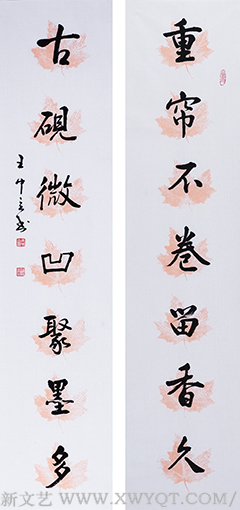 重帘不卷留香久
古砚微凹聚墨多
新文艺 / WWW.XWYQT.COM/